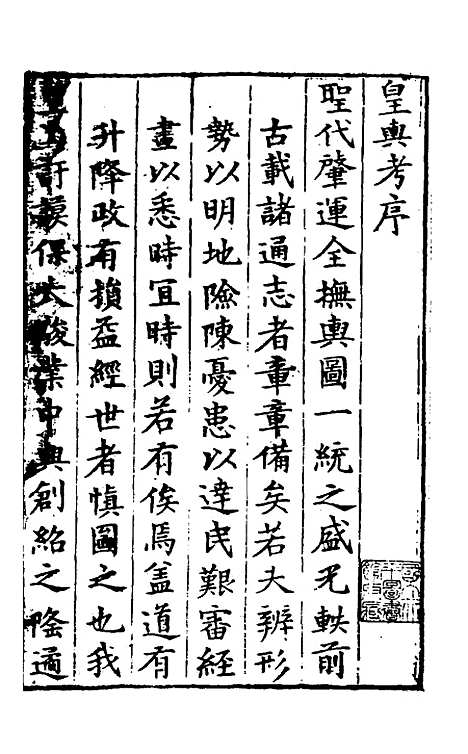 皇輿考序
聖代肇運全撫輿圖一統之盛旡軼前
古載諸通志者章章備矣若夫辨形
勢以明地險陳憂患以達民艱審經
畫以悉時宜時則若有俟焉盖道有
升降政有損益經世者慎圖之也我
訏謨保大駿業中興創紹之隆適